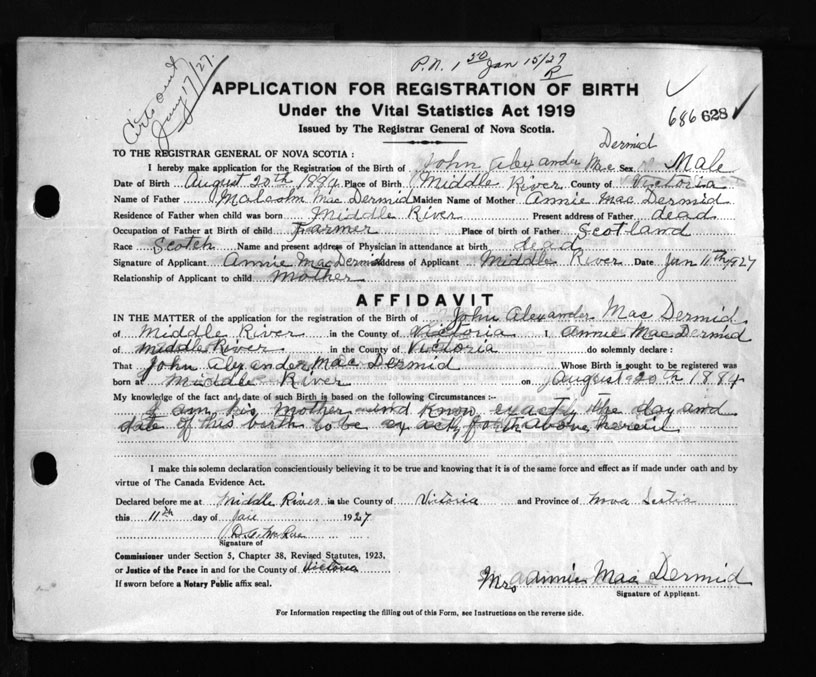 P.N. 1 50 Jan 15/27
R
Certs out
Jany 17/27.
APPLICATION FOR REGISTRATION OF BIRTH
Under the Vital Statistics Act 1919
686 628
Issued by The Registrar General of Nova Scotia.
Dermid
TO THE REGISTRAR GENERAL OF NOVA SCOTIA :
I hereby make application for the Registration of the Birth of John Alexander Mac Sex Male
Date of Birth August 20th 1884 Place of Birth Middle River County of Victoria
Name of Father Malcolm Mac Dermid Maiden Name of Mother Annie Mac Dermid
Residence of Father when child was born Middle River Present address of Father dead
Occupation of Father at Birth of child Farmer Place of birth of Father Scotland
Race Scotch Name and present address of Physician in attendance at birth dead
Signature of Applicant Annie MacDermid Address of Applicant Middle River Date Jan 11th 1927
Relationship of Applicant to child Mother
AFFIDAVIT
IN THE MATTER of the application for the registration of the Birth of John Alexander Mac Dermid
of Middle River in the County of Victoria I, Annie MacDermid
of Middle River in the County of Victoria do solemnly declare :
That John Alexander Mac Dermid Whose Birth is sought to be registered was
born at Middle River on August 20th 1884
My knowledge of the fact and date of such Birth is based on the following Circumstances :—
I am his Mother and know exactly the day and
date of his birth to be exactly forth above herein
I make this solemn declaration conscientiously believing it to be true and knowing that it is of the same force and effect as if made under oath and by
virtue of The Canada Evidence Act.
Declared before me at Middle River in the County of Victoria and Province of Nova Scotia
this 11th day of Jan 1927
Signature of
Commissioner under Section 5, Chapter 38, Revised Statutes, 1923,
or Justice of the Peace in and for the County of Victoria
If sworn before a Notary Public affix seal.
Mrs Annie Mac Dermid
Signature of Applicant.
For Information respecting the filling out of this Form, see Instructions on the reverse side.